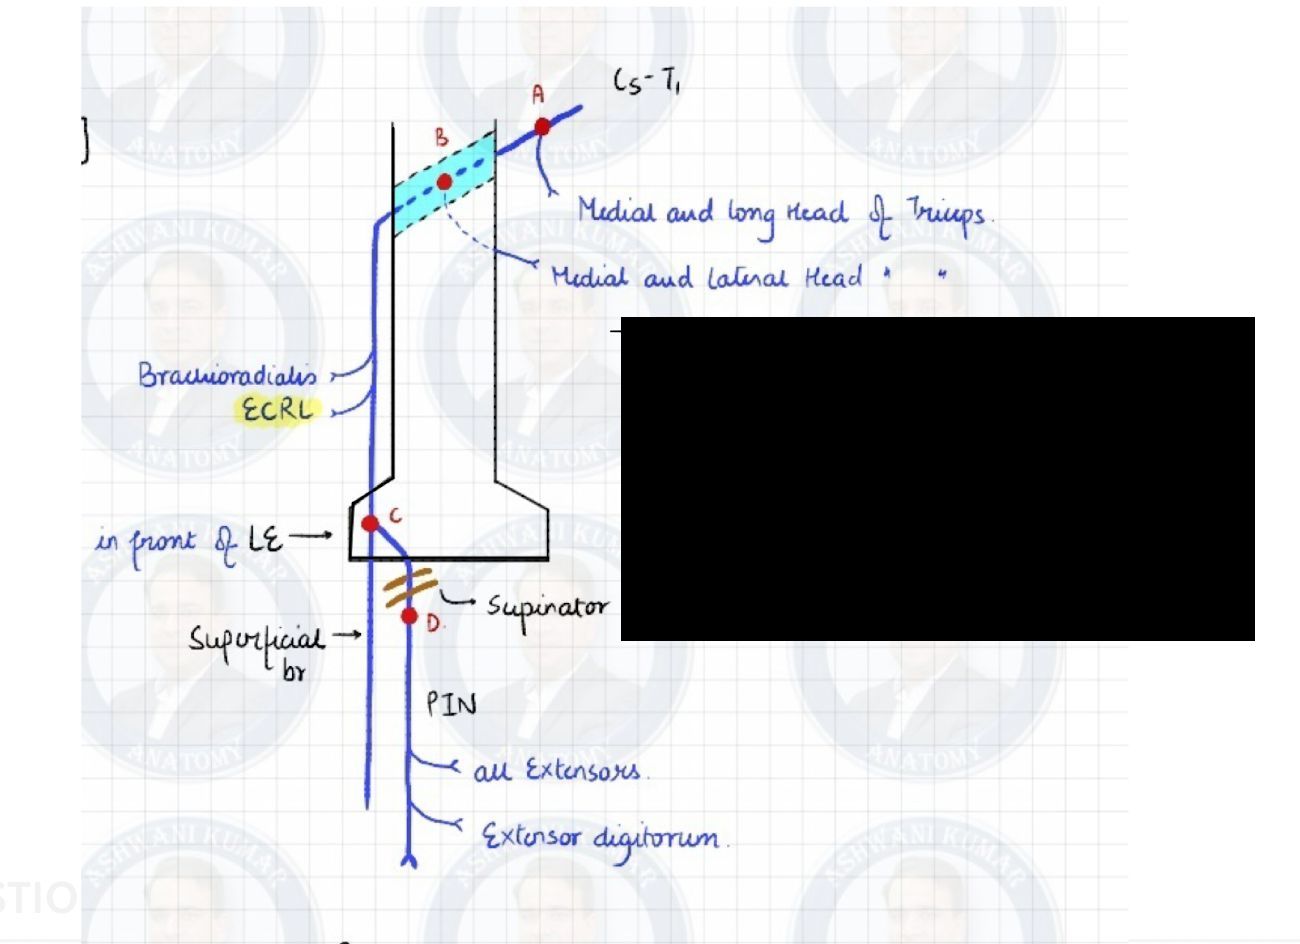 C5-T1
A
B
Medial and long Head of Triceps.
Medial and Lateral Head " "
Brachioradialis
ECRL
C
in front of LE →
Supinator
D.
Superficial →
br
PIN
all Extensors.
Extensor digitorum.
ASHWANI KUMAR
ANATOMY
STIO